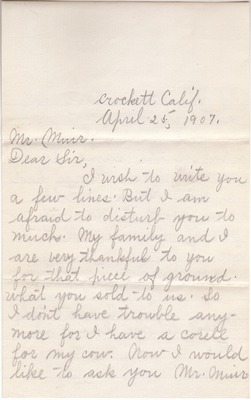 Crockett Calif.
April 25, 1907.
Mr. Muir.
Dear Sir,
I wsh to write you
a few lines. But I am
afraid to disturf you to
much. My family and I
are very thankful to you
for that piece of ground.
what you sold to us. So
I dont have trouble any-
more for I have a corell
for my cow. Now I would
like to ask you Mr. Muir